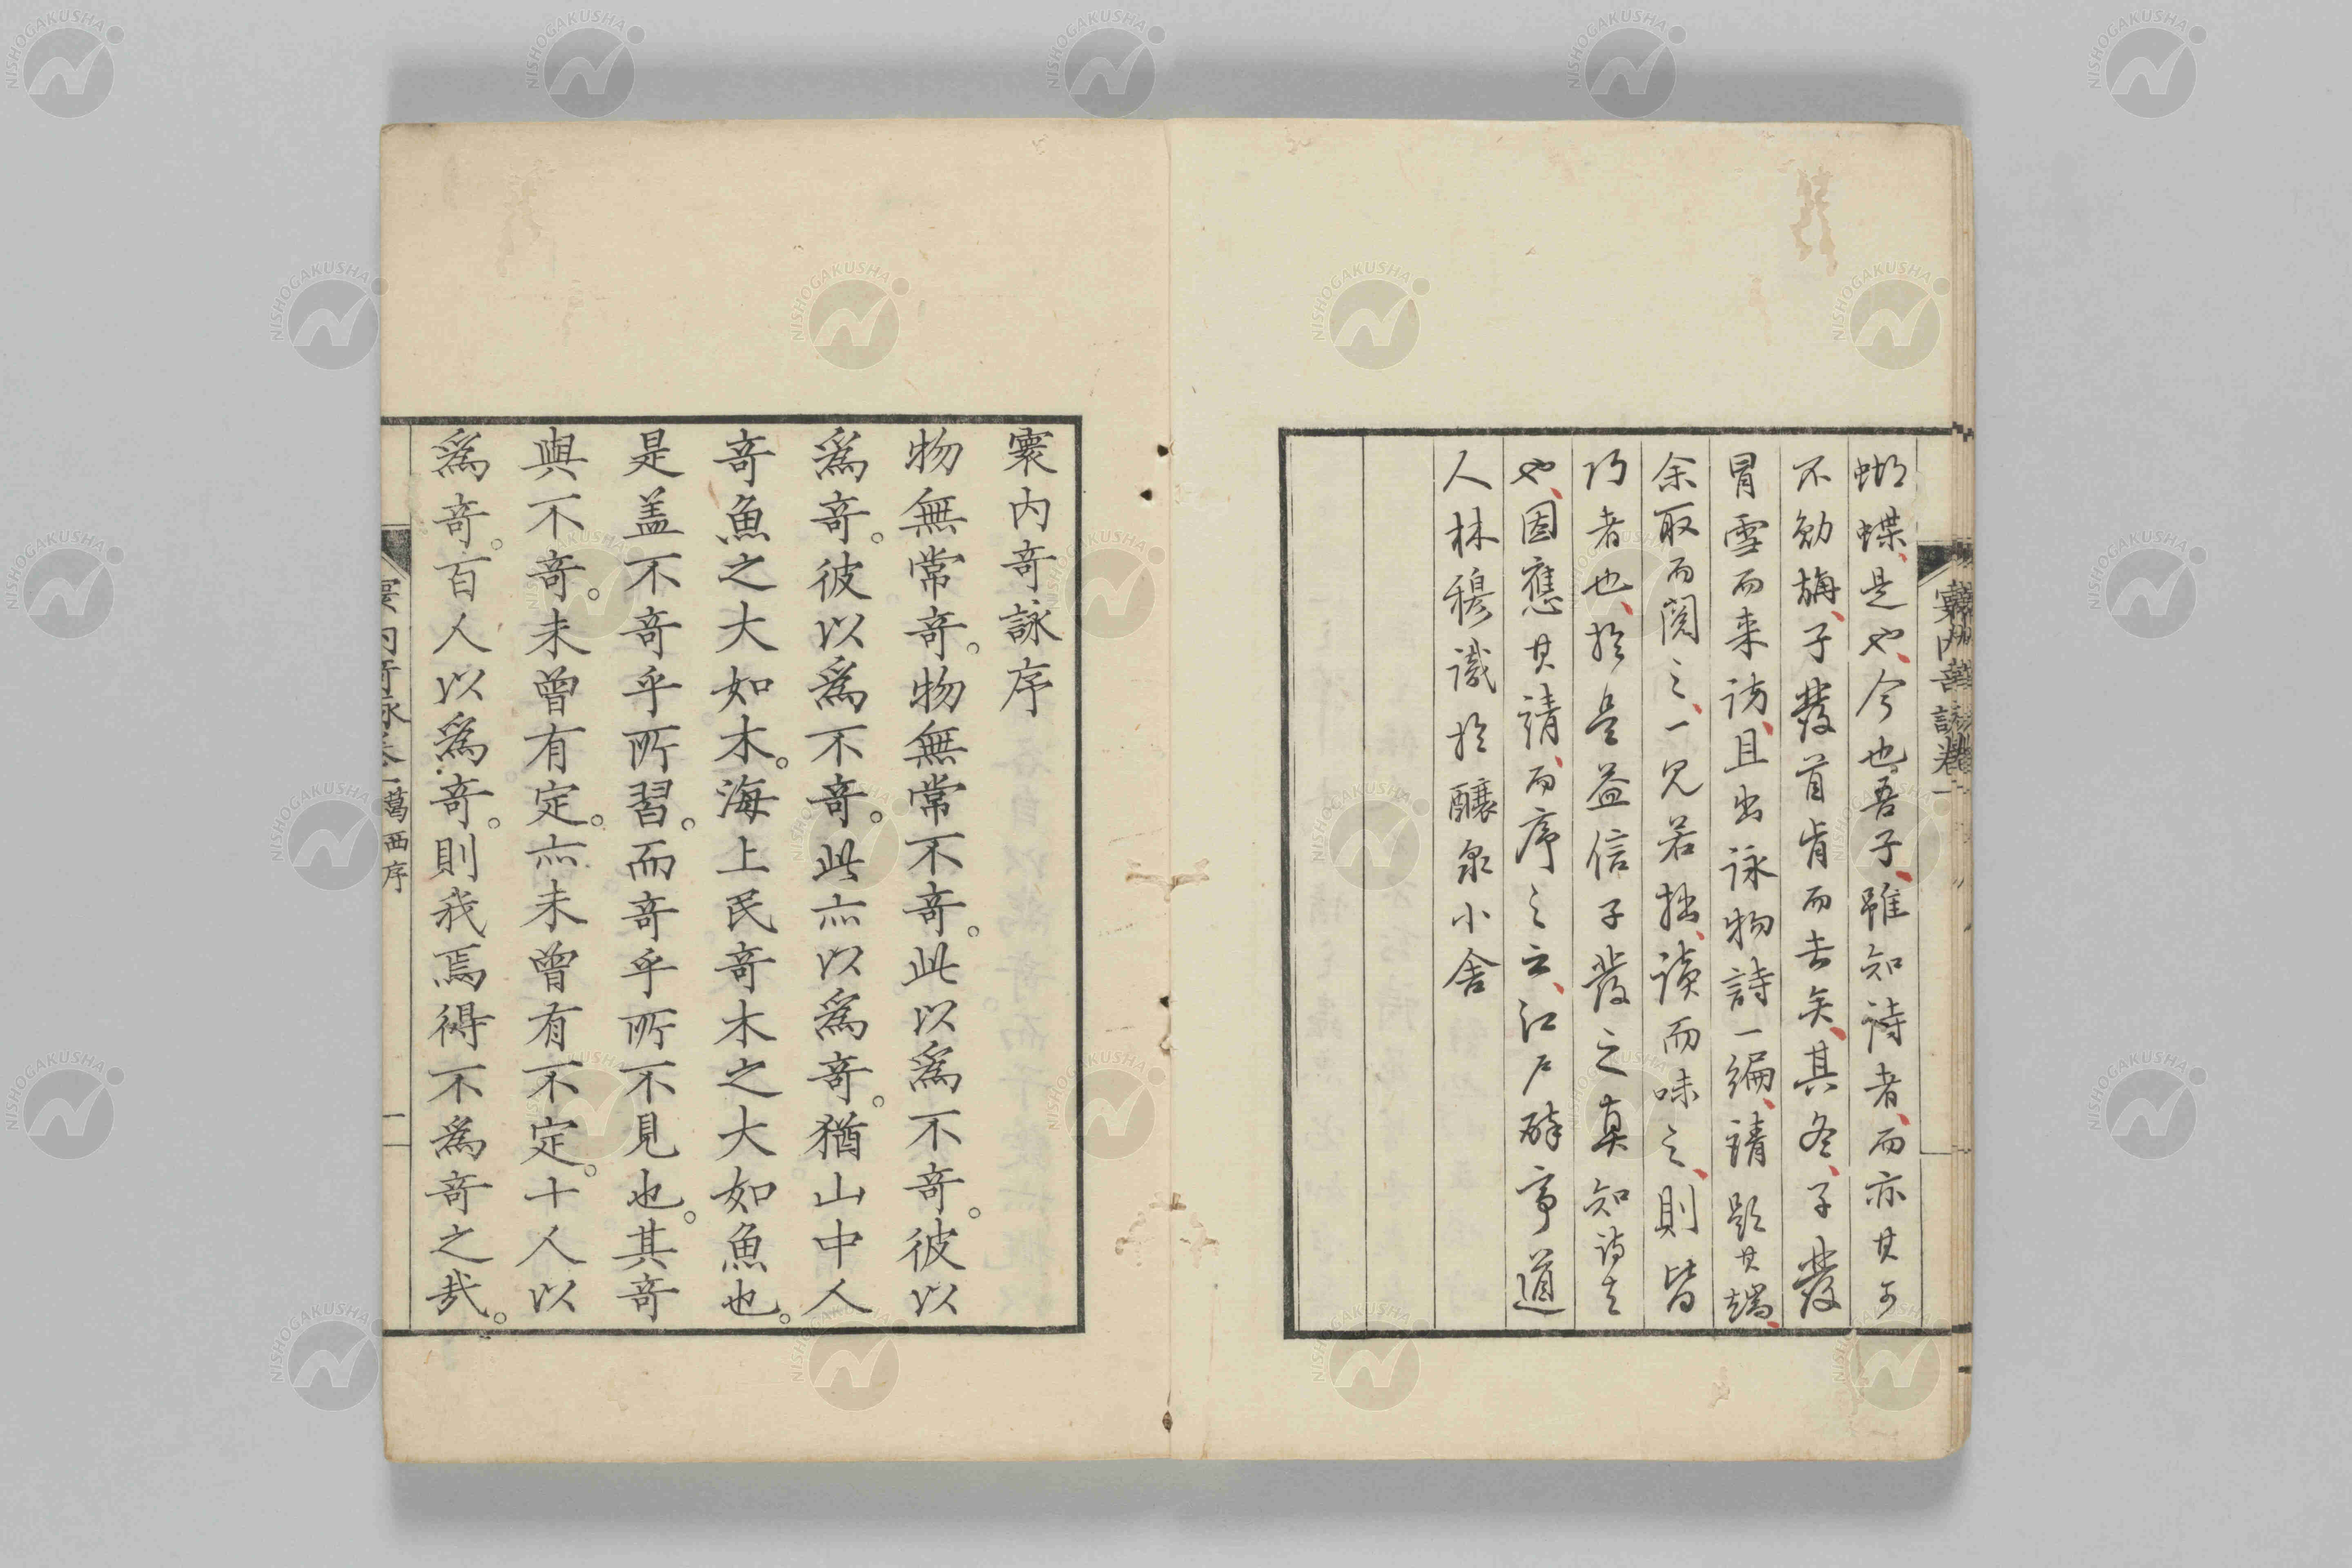 蝴蝶、是也、今也吾子、雖知詩者、而亦其可
不勉旃、子發首肯而去矣、其冬、子發
冒雪而来訪、且出詠物詩一編、請題其端、
余取而閲之、一見若拙、讀而味之、則皆
巧者也、於是益信子發之真知詩者
也、因應其請、而序之云、江戸醉亭道
人林穆識於釀泉小舍
寰内奇詠序
物無常奇。物無常不奇。此以爲不奇。彼以
爲奇。彼以爲不奇。此亦以爲奇。猶山中人
奇魚之大如木。海上民奇木之大如魚也。
是盖不奇乎所習。而奇乎所不見也。其奇
與不奇。未曾有定。亦未曾有不定。十人以
爲奇。百人以爲奇。則我焉得不爲奇之哉。
寰内奇詠卷一葛西序
一
NISHOGAKUSHA